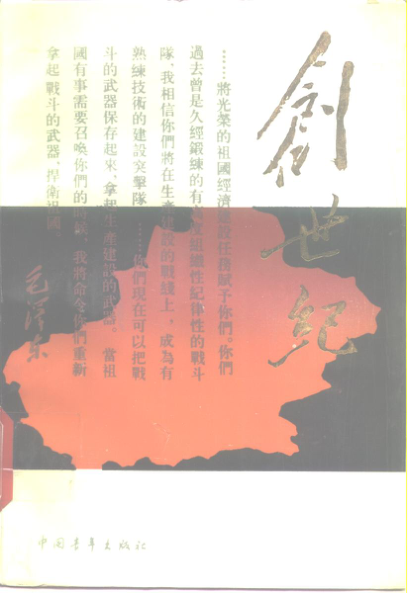 創世紀
……將光榮的祖國經濟建設任務賦予你們。你們
過去曾是久經鍛練的有高度組織性紀律性的戰斗
隊、我相信你們將在生產建設的戰綫上，成為有
熟練技術的建設突擊隊……你們現在可以把戰
斗的武器保存起来、拿起生產建設的武器。當祖
國有事需要召喚你們的時候、我將命令你們重新
拿起戰斗的武器、捍衛祖國
毛澤东
中国青年出版社